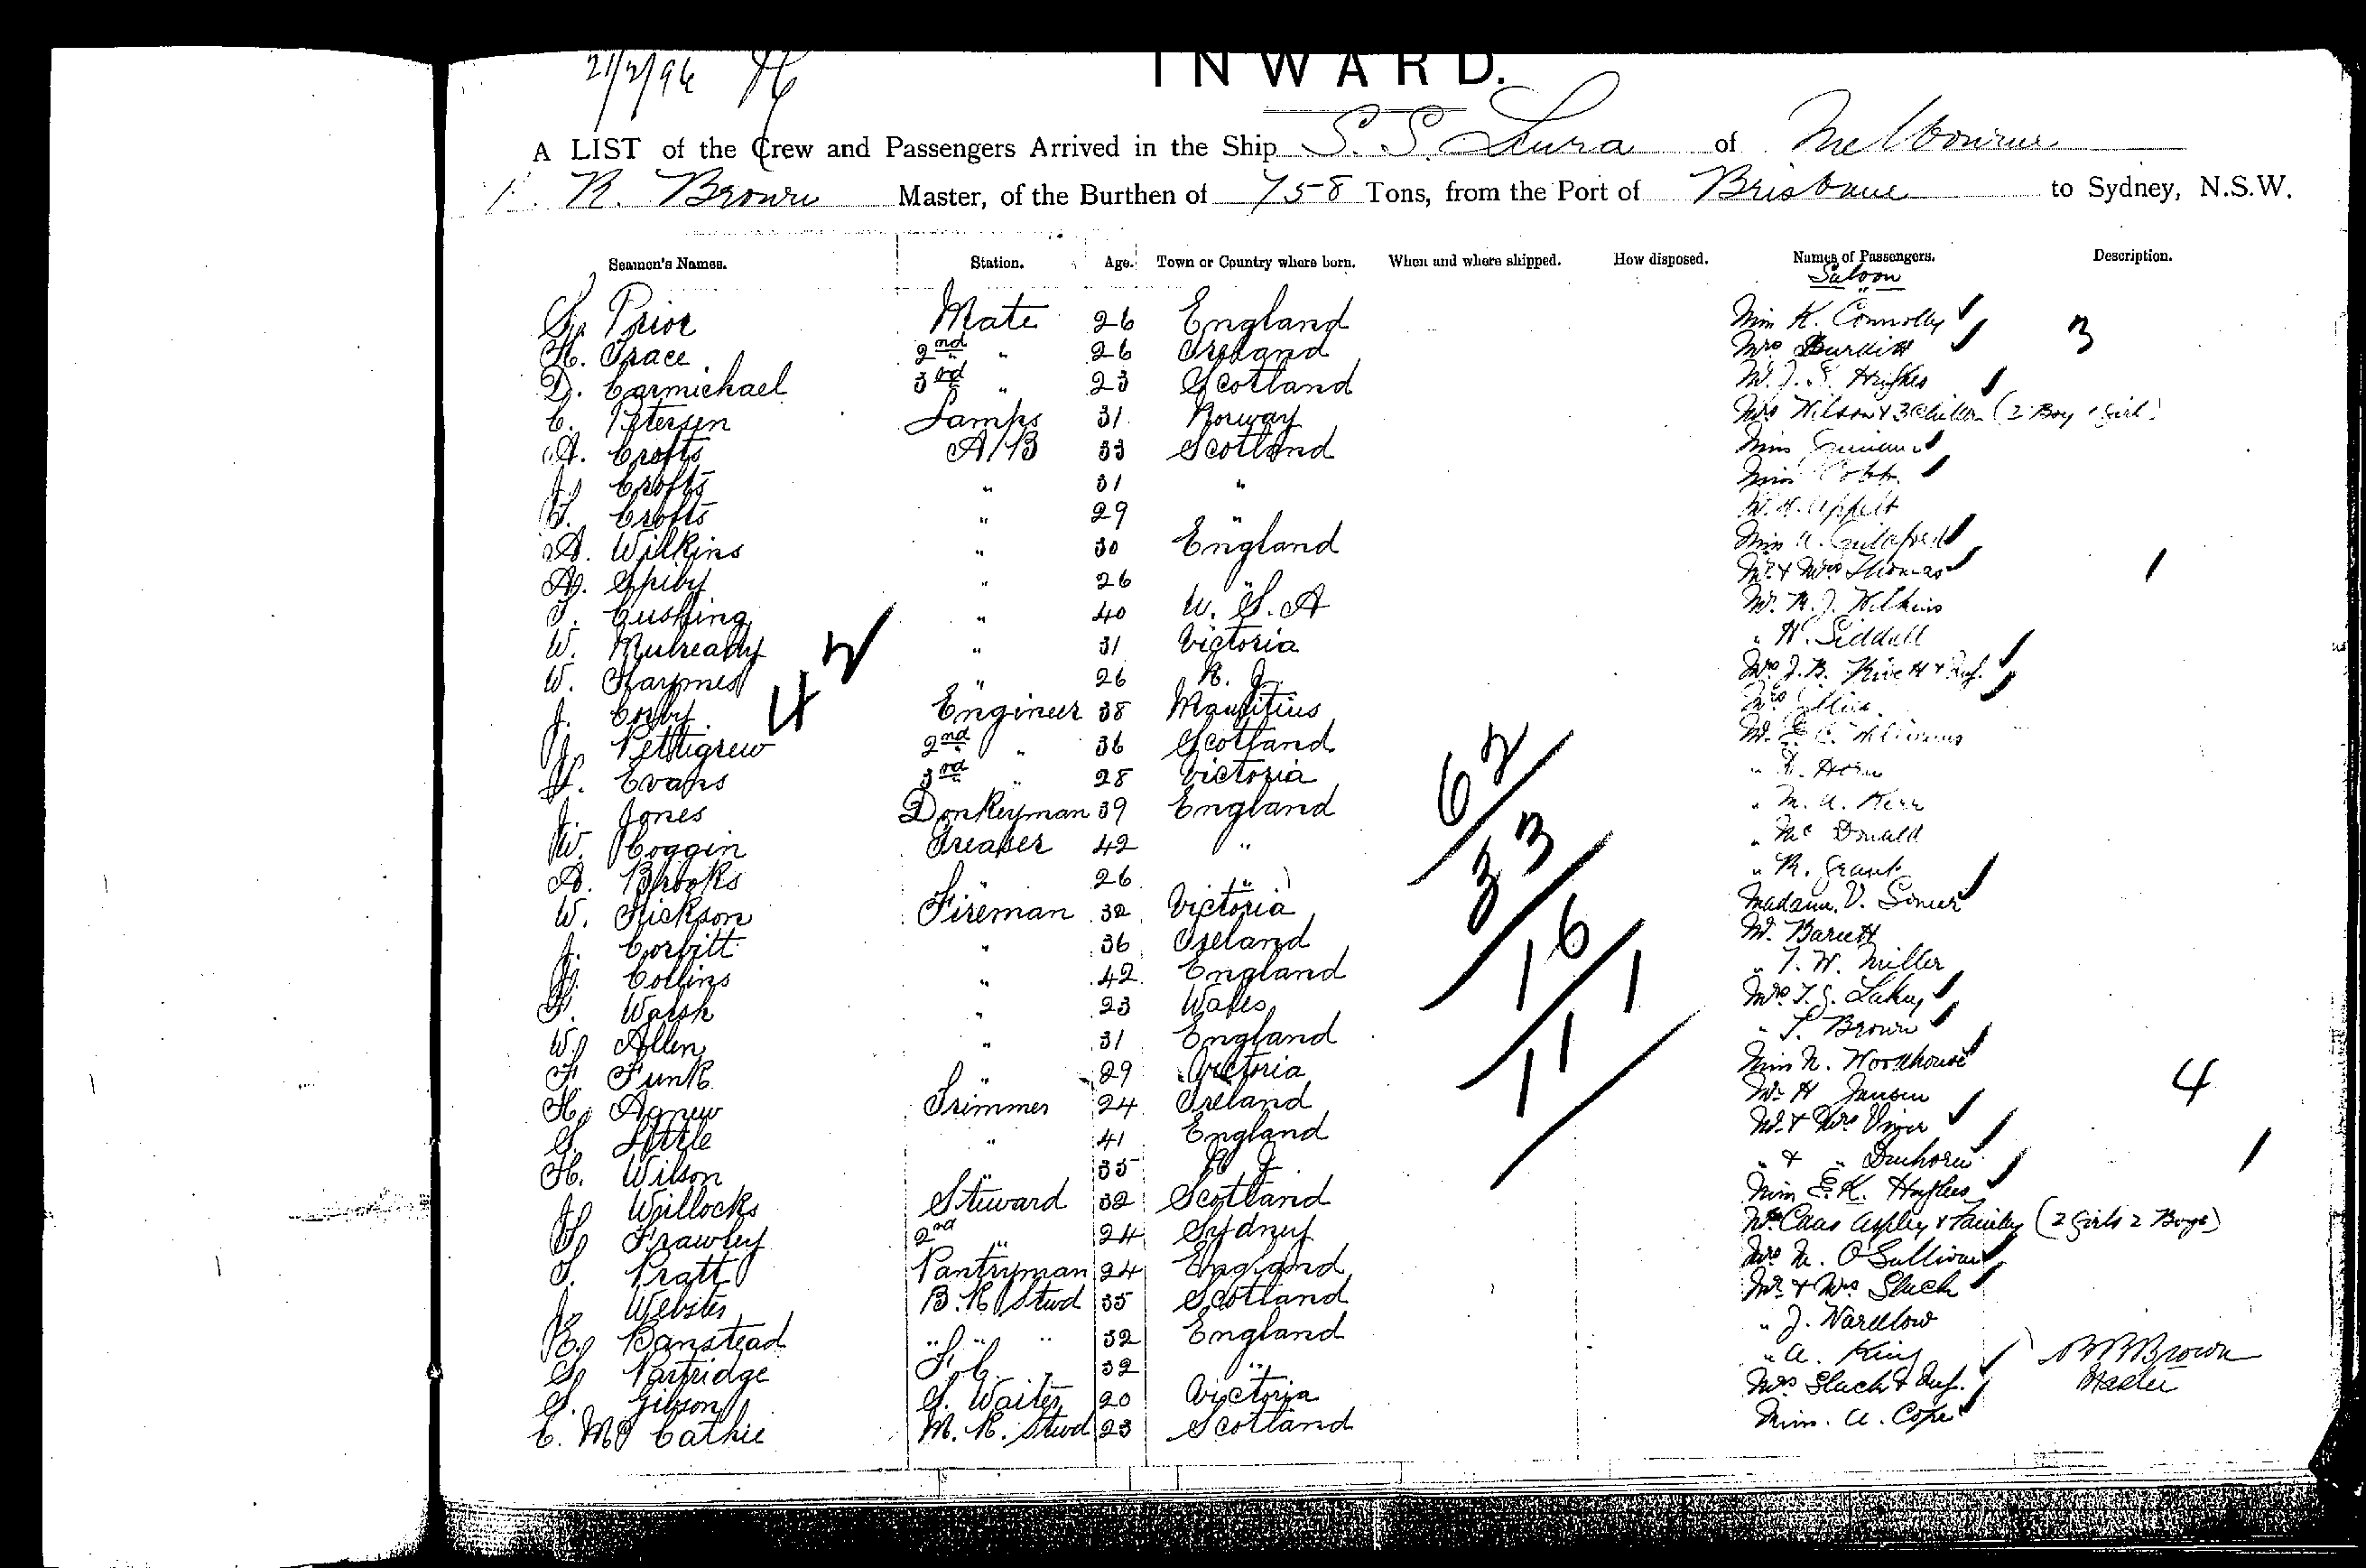 21/2/96
INWARD.
A LIST of the Crew and Passengers Arrived in the Ship S. S. Lura of Melbourne
R. Brown Master, of the Burthen of 758 Tons, from the Port of Brisbane to Sydney, N.S.W.
Seamen's Names. Station. Age. Town or Country where born. When and where shipped. How disposed. Names of Passengers. Description.
Saloon
S. Prior Mate 26 England Miss K. Connolly 3
H. Trace 2nd " 26 Ireland Mrs
D. Carmichael 3rd " 23 Scotland Mr. J. S. Hughes
C. Petersen Lamps 31 Norway Mrs Wilson & 3 Children (2 Boy 1 Girl)
A. Crofts A/B 33 Scotland Miss
J. Crofts " 31 " Miss Cobb
T. Crofts " 29 "
A. Wilkins " 30 England Miss A.
A. Spiby " 26 " Mr & Mrs Thomas 1
T. Cushing " 40 U. S. A Mr. R. J. Wilkins
W. Mulready " 31 Victoria " H. Siddall
W. Harymes " 26 N. Z. Mrs J. B. & Inf.
J. Corby Engineer 38 Mauritius Mrs
J. Pettigrew 2nd " 36 Scotland Mr. E. C. Williams
Evans 3rd " 28 Victoria " Horn
J. Jones Donkeyman 39 England " M. A. Kerr
W. Coggin Greaser 42 " " Mc Donald
A. Brooks " 26 " " R. Grant
W. Hickson Fireman 32 Victoria Madame V.
J. Corbitt " 36 Ireland Mr. Barrett
J. Collins " 42 England " T. W. Miller
F. Walsh " 23 Wales Mrs T. J. Lahey
W. Allen " 31 England " T. Brown
F. Funk " 29 Victoria Miss N. Woodhouse
H. Agnew Trimmer 24 Ireland Mr H Jansen 4
S. Little " 41 England Mr & Mrs
H. Wilson " 35 N. Z. " & "
J. Willocks Steward 32 Scotland Miss E. K. Hughes
Frawley 2nd " 24 Sydney Mr Chas Apley & Family (2 Girls 2 Boys)
T. Pratt Pantryman 24 England Mrs M. O'Sullivan
J. Webster B. R. Stwd 35 Scotland Mr & Mrs Slack
E. Banstead " " " 32 England " J. Wardlow
S. Partridge F. C. 32 " " A. King R Brown
S. Gibson S. Waiter 20 Victoria Mrs Slack & Inf. Master
C. Mc Cathie M. R. Stwd 23 Scotland Miss. A. Cope
42
62
33
16
1
11